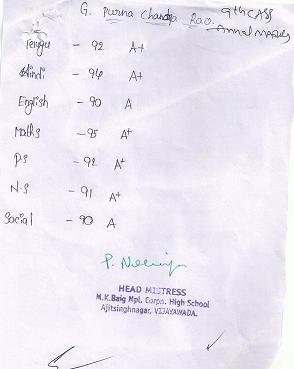 G. Purna Chandra Rao. 9th CASS
Annual Marks
Telugu - 92 A+
Hindi - 94 A+
English - 90 A
Maths - 95 A+
PS - 92 A+
N-S - 91 A+
Social - 90 A
HEAD MISTRESS
M.K.Baig Mpl. Corpn. High School
Ajitsinghnagar, VIJAYAWADA.